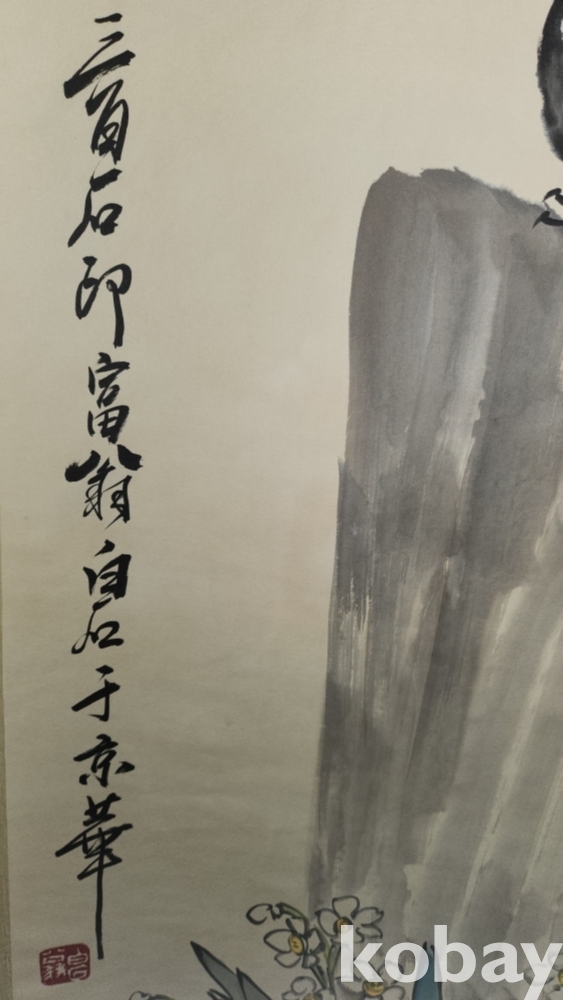 三百石印富翁白石于京華
kobay